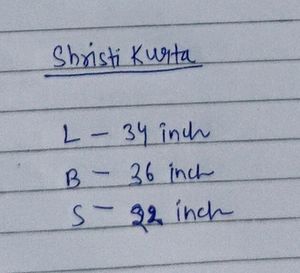 Shristi Kurta
L - 34 inch
B - 36 inch
S - 32 inch